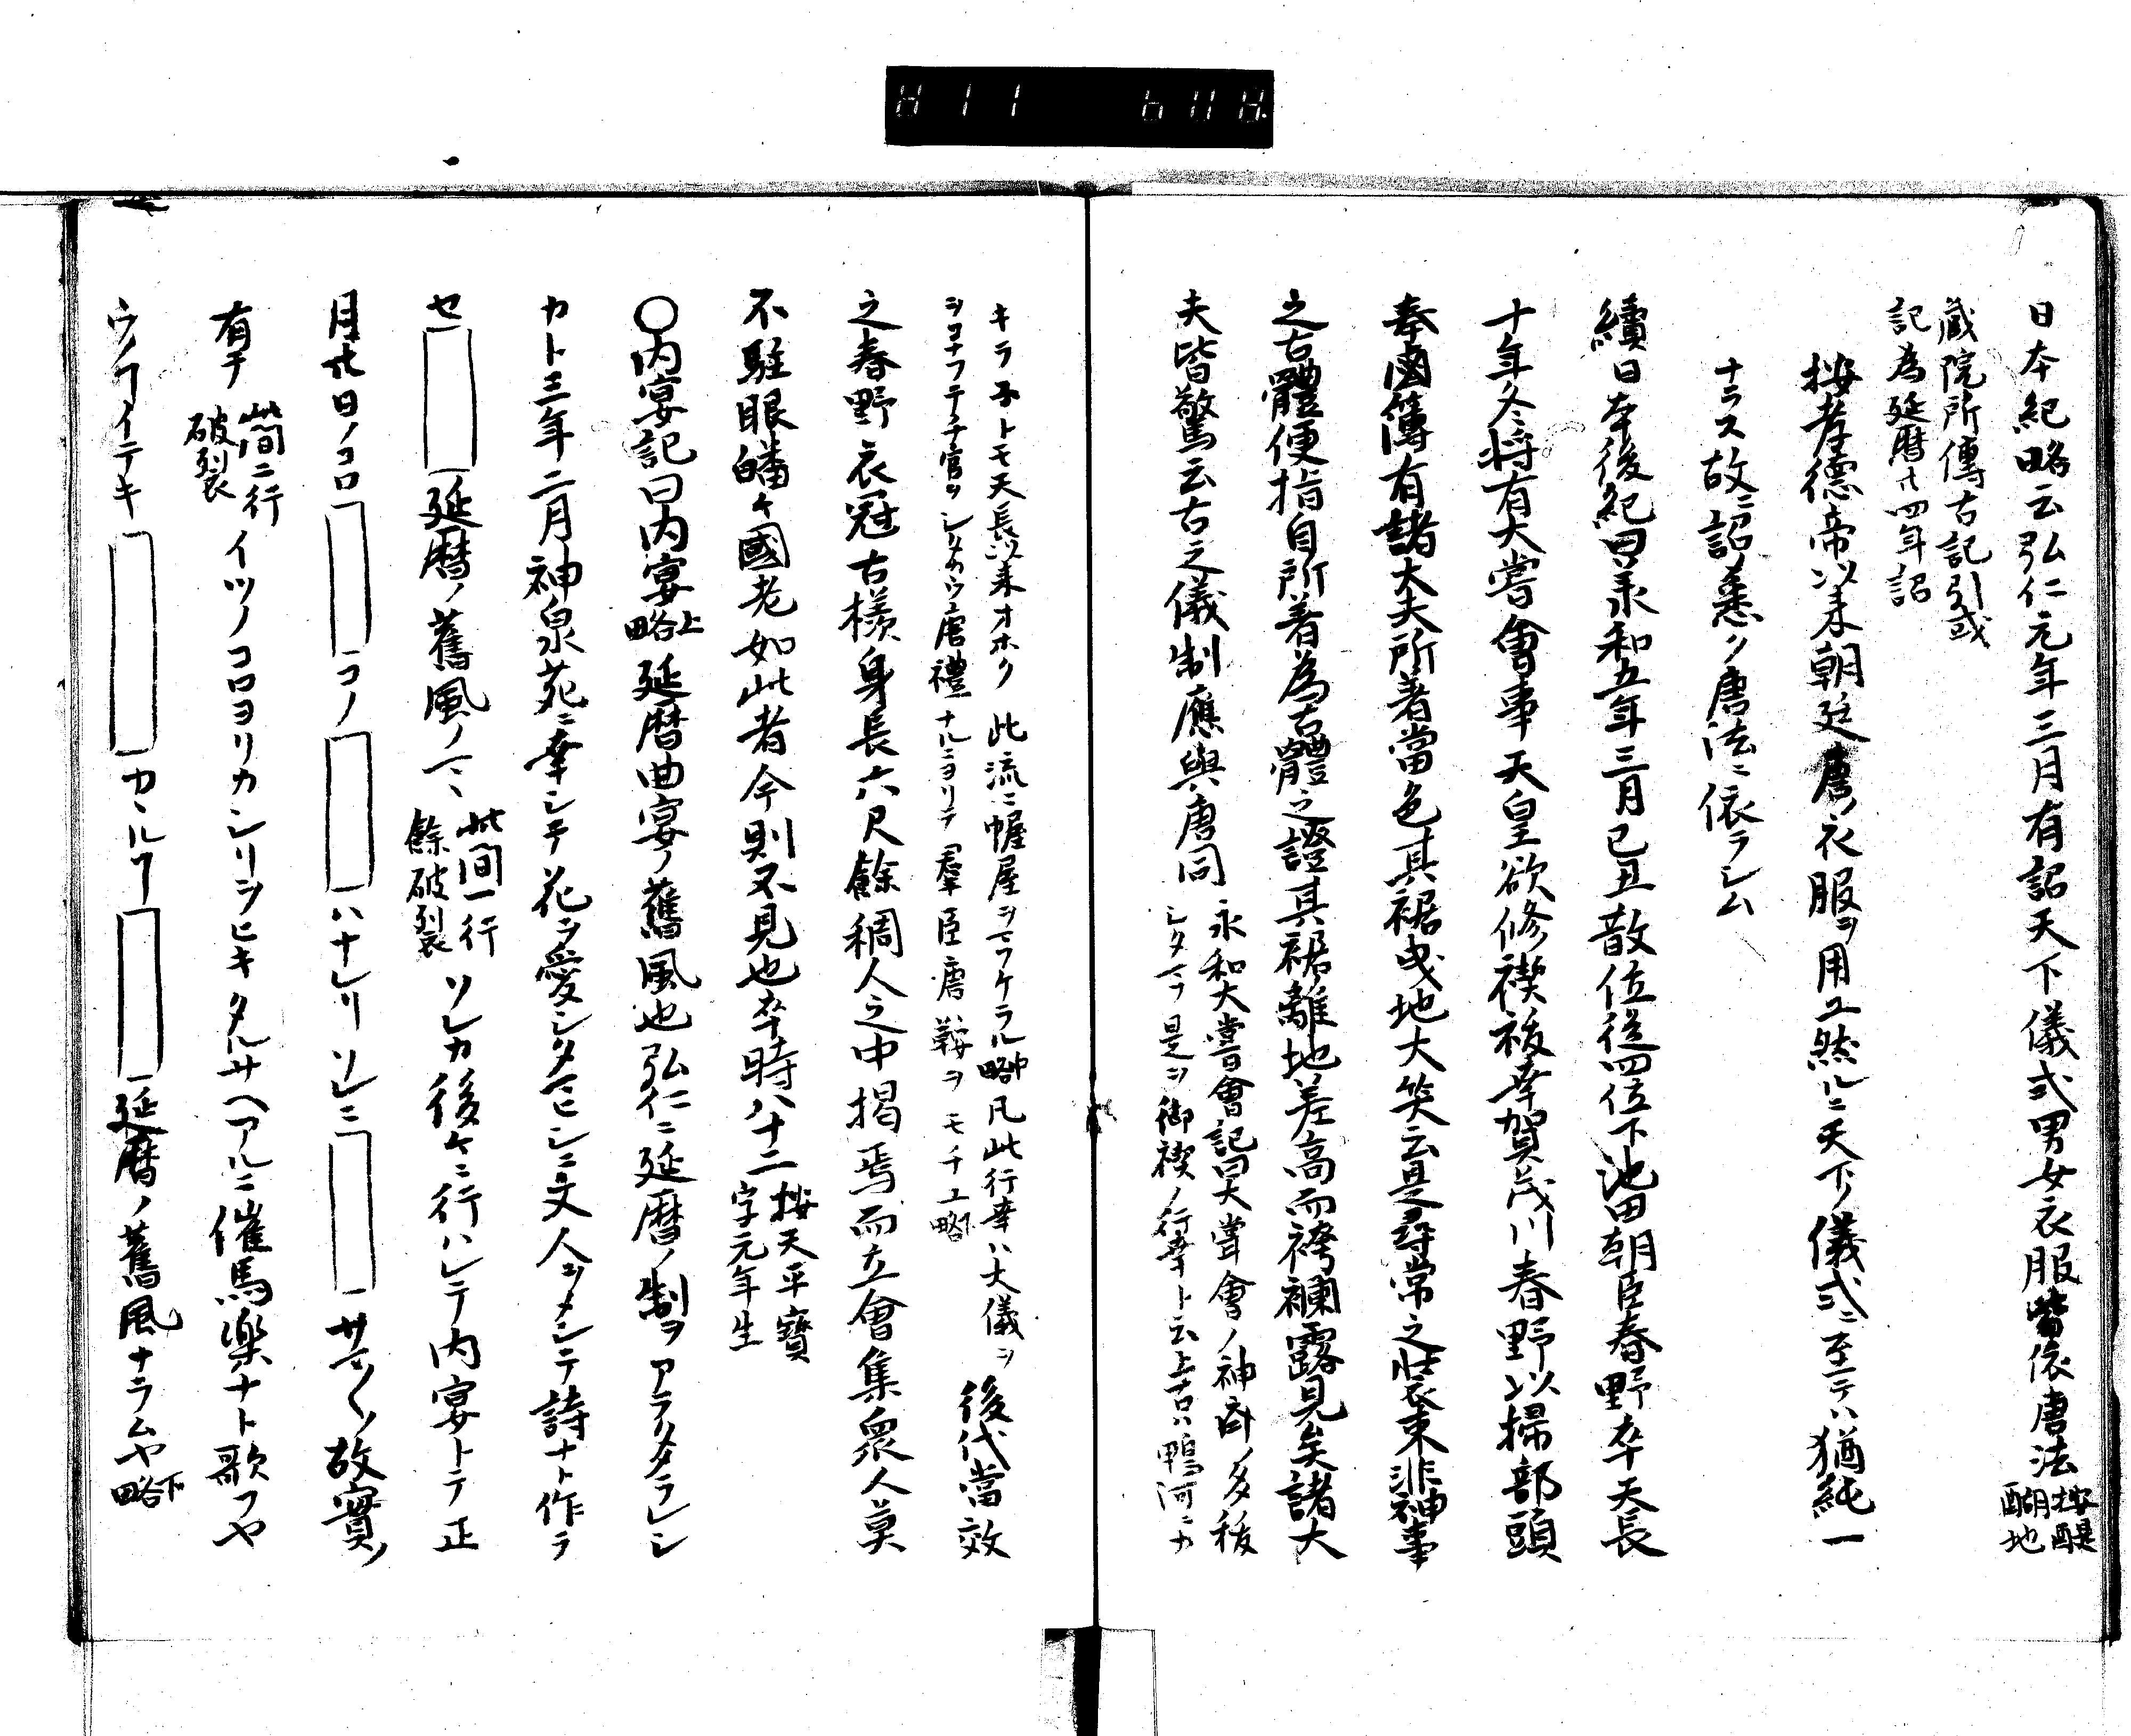 日本紀略云弘仁元年三月有詔天下儀式男女衣服皆依唐法
按醍
醐地
蔵院所傳古記引或
記為延暦廿四年詔
按孝德帝以来朝廷唐ノ衣服ヲ用ユ然ルニ天下ノ儀式ニ至テハ猶純一
ナラス故ニ詔シ悉ク唐法ニ依ラシム
續日本後紀曰承和五年三月己丑散位従四位下池田朝臣春野卒天長
十年冬将有大嘗會事天皇欲修禊祓幸賀茂川春野以掃部頭
奉鹵簿有諸大夫所著當色其裾曳地大笑云是尋常之装束非神事
之古體便指自所著為古體之證其裾離地差高而袴襴露見矣諸大
夫皆驚云古之儀制應與唐同
永和大嘗會記曰大嘗會ノ神斎ノ多祓
シタマフ是ヲ御禊ノ行幸ト云上古ハ鴨河ニカ
キラ子トモ天長以来オホク此流ニ幄屋ヲマウケラル中略凡此行幸ハ大儀ヲ
ヲコナフテ千官ヲシタカウ唐禮ナルニヨリテ羣臣唐鞍ヲモチユ下略
後代當效
之春野衣冠古様身長六尺餘稠人之中揭焉而立會集衆人莫
不駐眼皤々國老如此者今則不見也卒時八十二
按天平寶
字元年生
〇内宴記曰内宴上略延暦曲宴ノ舊風也弘仁ニ延暦ノ制ヲアラタメラレシ
カト三年二月神泉苑ニ幸シテ花ヲ愛シタマヒシニ文人ヲメシテ詩ナト作ラ
セ 延暦ノ舊風ノマヽ
此間一行
餘破裂
ソレカ後々ニ行ハレテ内宴トテ正
月廿日ノコロ コノ ハナレリソレニ サマ〱ノ故實ノ
有テ
此間二行
破裂
イツノコロヨリカシリヲヒキタルサヘアルニ催馬楽ナト歌フヤ
ウノヿイテキ カヽルヿ 延暦ノ舊風ナラムヤ下略